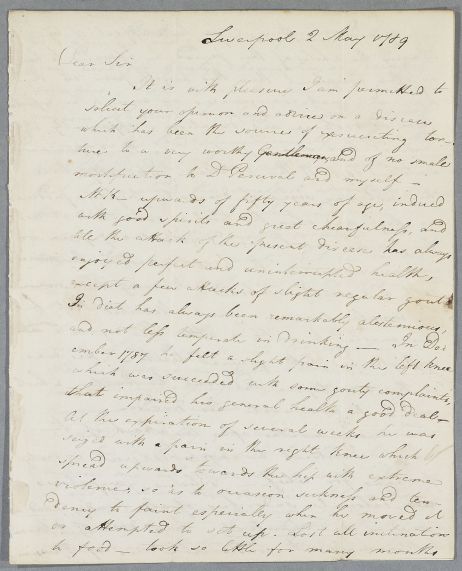 Liverpool 2 May 1789
Dear Sir
It is with pleasure I am permitted to
solicit your opinion and advice on a disease
which has been the source of excruciating tor-
ture to a very worthy Gentleman, and of no small
mortification to Dr Percival and myself —
Mr K— upwards of fifty years of age, indued
with good spirits and great chearfulness, and
till the attack of his present disease has always
enjoyed perfect and uninterrupted health,
except a few attacks of slight regular gout
In diet has always been remarkably abstemious,
and not less temperate in drinking — In De-
cember 1787 he felt a slight pain in the left knee
which was succeeded with some gouty complaints,
that impaired his general health a good deal —
At the expiration of several weeks he was
seized with a pain in the right knee which
spread upwards towards the hip with extreme
violence, so as to occasion sickness and ten-
dency to faint especially when he moved it
or attempted to set up. Lost all inclination
to food — took so little for many months